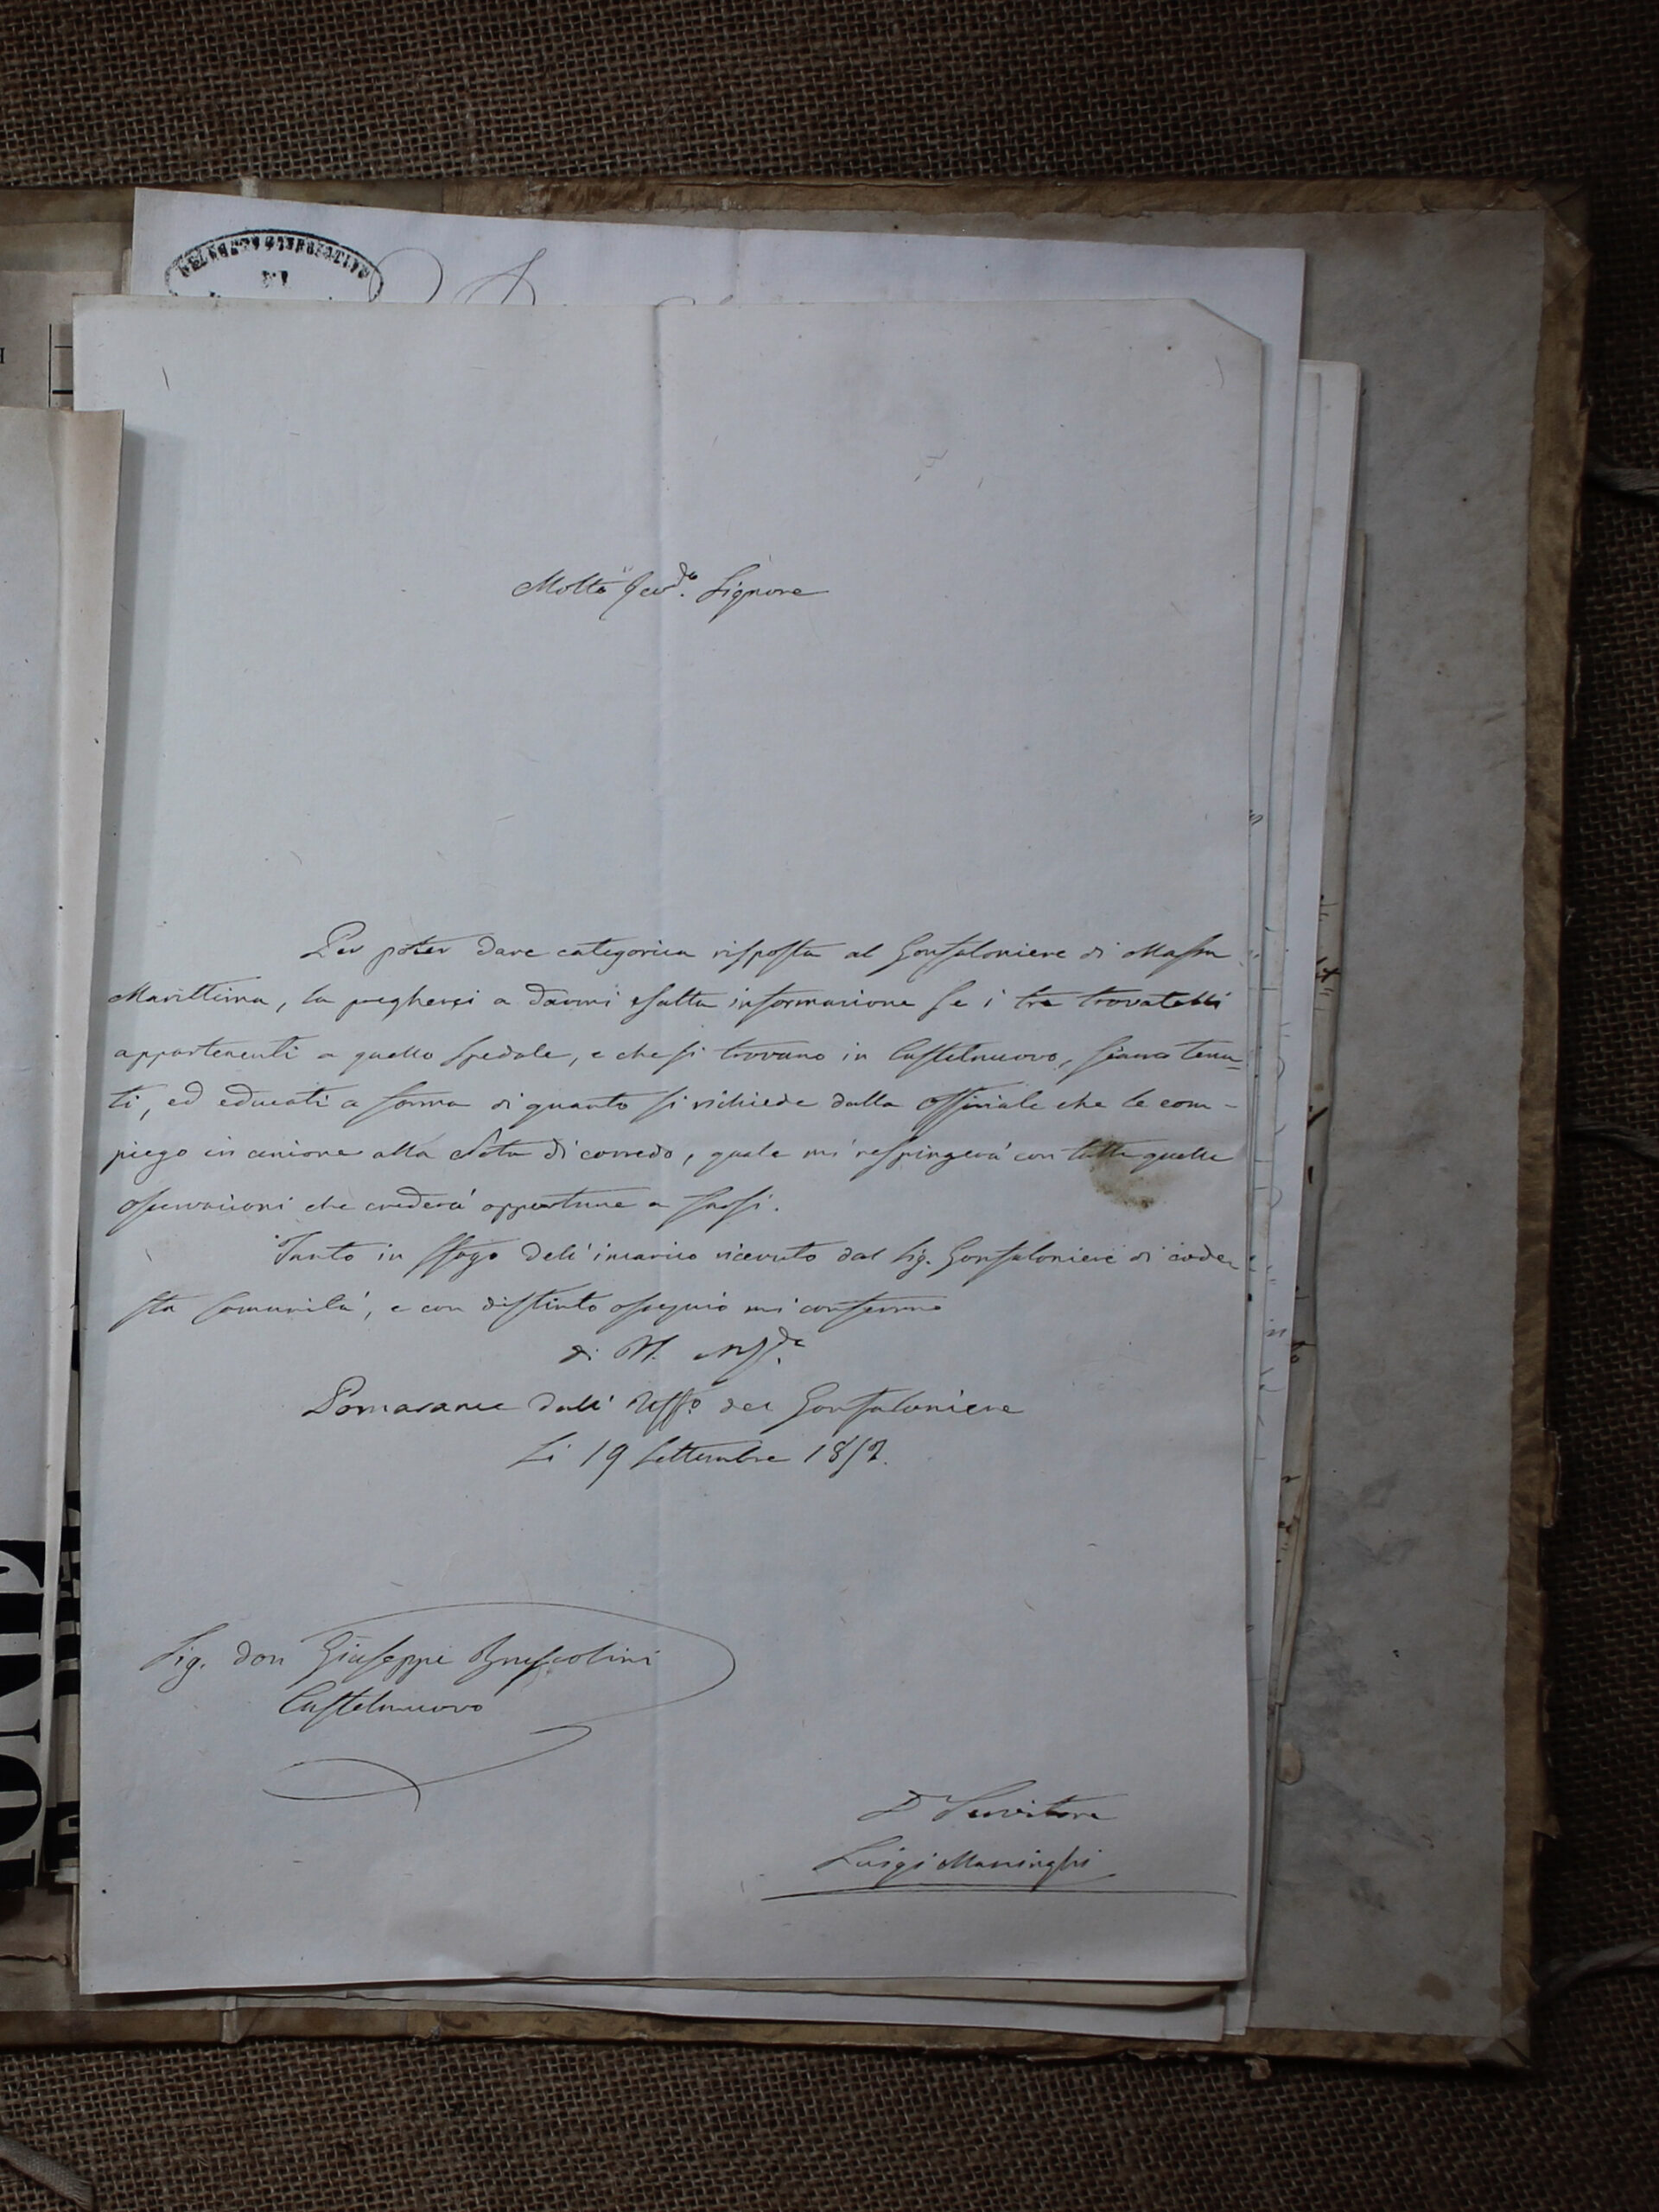 DELEGATO GOVERNATIVO
DI
Molto Revdo. Signore
Per poter dare categorica risposta al Gonfaloniere di Massa
Marittima, la pregherei a darmi esatta informazione se i tre trovatelli
appartenenti a quello Spedale, e che si trovano in Castelnuovo, siano tenu=
ti, ed educati a forma di quanto si richiede dalla Officiale che le com-
piego in unione alla Nota di corredo, quale mi respingerà con tutte quelle
osservazioni che crederà opportune a farsi.
Tanto in sfogo dell' incarico ricevuto dal Sig. Gonfaloniere di code-
sta Comunità, e con distinto ossequio mi confermo
di M.
Pomarance dall' Uffo. del Gonfaloniere
Li 19 Settembre 1852.
Sig. Don Giuseppe Bruscolini
Castelnuovo
D Servitore
Luigi
ONE